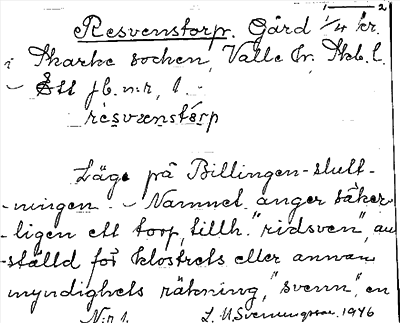 2
Resvenstorp. Gård 1/4 kr.
i Skarke socken, Valle hr. Skb. l.
- Ett jb. n:r, 1. -
resvænstárp
Läge på Billingen-slutt-
-ningen - Namnet anger säker-
-ligen ett torp, tillh. "ridsven", an-
-ställd för klostrets eller annan
myndighets räkning, "svenn", en
N:r 1. L. M. Svenungsson 1946